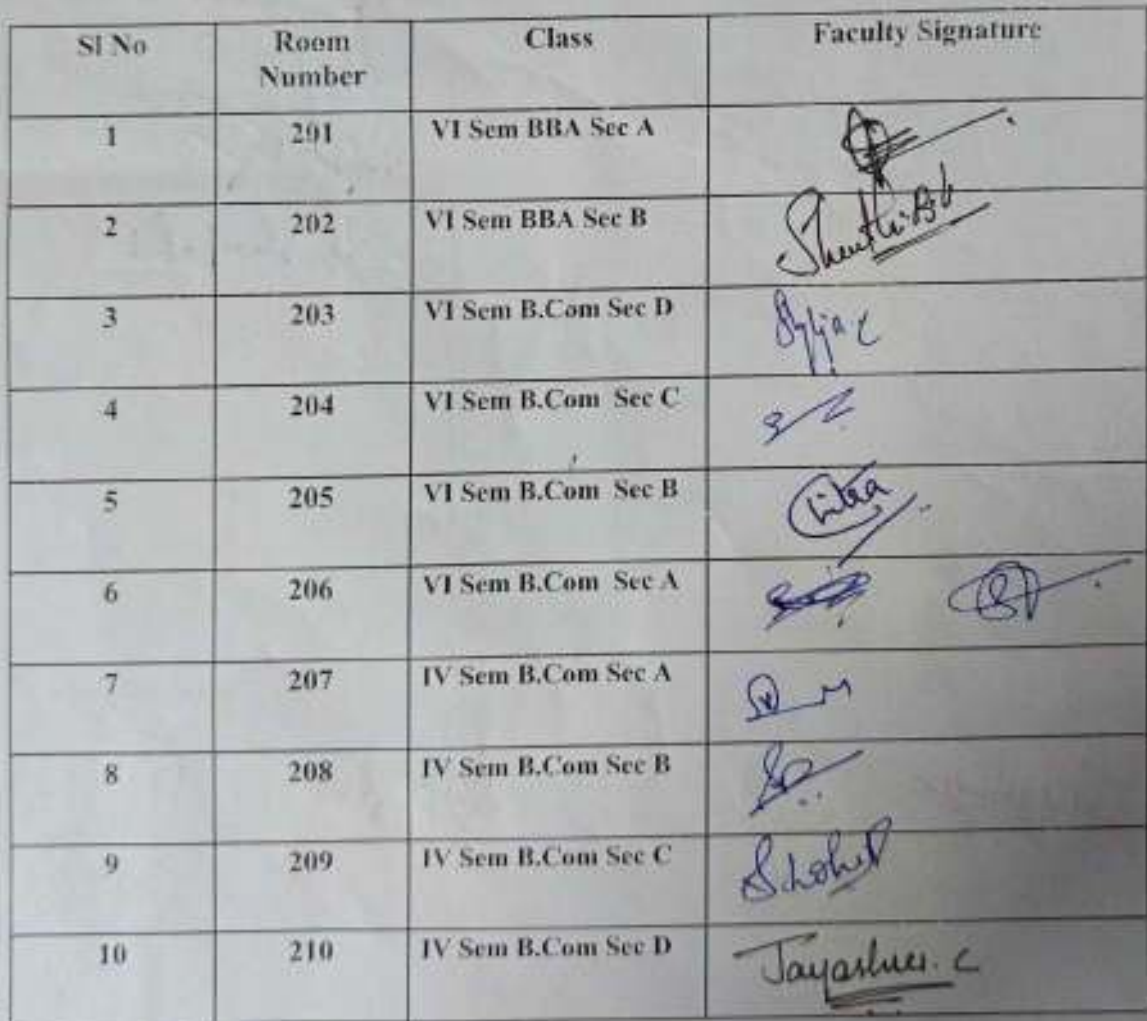 Sl No Room Number Class Faculty Signature
1 201 VI Sem BBA Sec A
2 202 VI Sem BBA Sec B
3 203 VI Sem B.Com Sec D
4 204 VI Sem B.Com Sec C
5 205 VI Sem B.Com Sec B
6 206 VI Sem B.Com Sec A
7 207 IV Sem B.Com Sec A
8 208 IV Sem B.Com Sec B
9 209 IV Sem B.Com Sec C
10 210 IV Sem B.Com Sec D